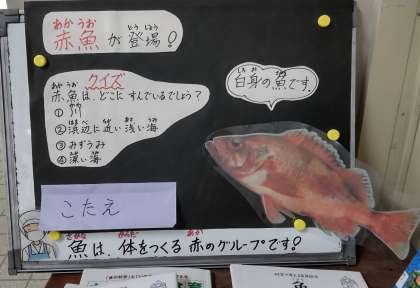 赤魚が登場!
あか うお
とう じょう
クイズ
赤魚は、どこにすんでいるでしょう?
あか うお
①川
かわ
②浜辺に近い浅い海
はま べ ちか あさ うみ
③みずうみ
④深い海
ふか うみ
白身の魚です。
しろ み さかな
こたえ
魚は、体をつくる赤のグループです!
さかな からだ あか
魚